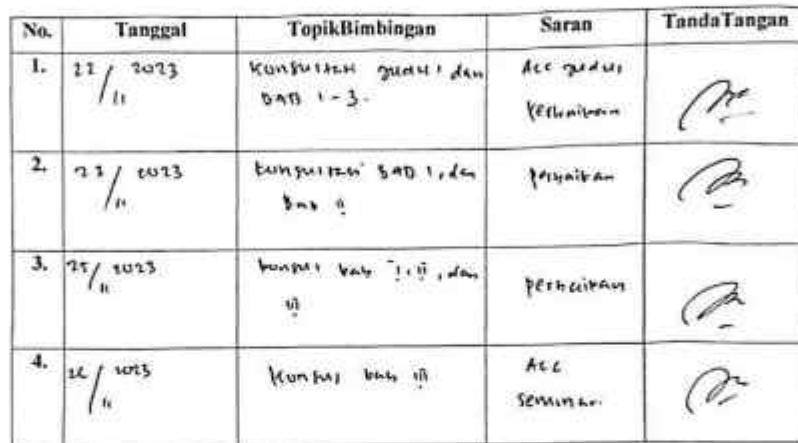 No. Tanggal TopikBimbingan Saran TandaTangan
1. 22/11 2023 Konsultasi judul dan Acc judul
BAB 1-3. Perbaikan
2. 23/11 2023 konsultasi BAB 1, dan perbaikan
Bab ii
3. 25/11 2023 konsul bab i, ii, dan perbaikan
iii
4. 26/11 2023 Konsul bab iii Acc
seminar.